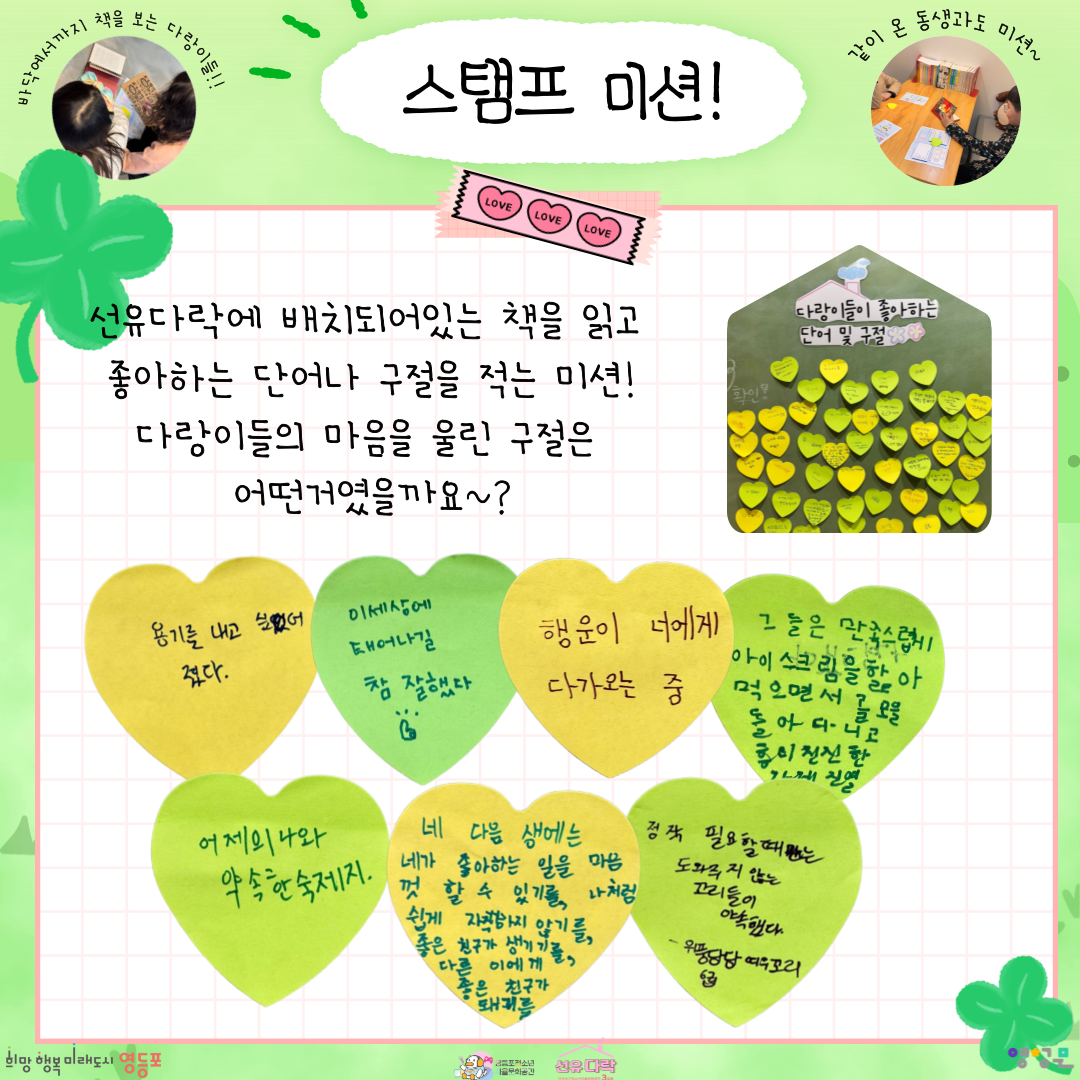 바닥에서까지 책을 보는 다랑이들!!
스탬프 미션!
같이 온 동생과도 미션~
LOVE LOVE LOVE
선유다락에 배치되어있는 책을 읽고
좋아하는 단어나 구절을 적는 미션!
다랑이들의 마음을 울린 구절은
어떤거였을까요~?
다랑이들이 좋아하는
단어 및 구절
용기를 내고 싶
졌다.
이세상에
태어나길
참 잘했다
행운이 너에게
다가오는 중
그들은 만족스럽게
아이스크림을 핥아
먹으면서 골목을
돌아다니고
흥미진진한
진열
어제의 나와
약속한 숙제지.
네 다음 생에는
네가 좋아하는 일을 마음
껏 할 수 있기를, 나처럼
쉽게 자책하지 않기를,
좋은 친구가 생기기를,
다른 이에게
좋은 친구가
돼기를
정작 필요할 때
도와주지 않는
꼬리들이
야속했다
- 위풍당당 여우꼬리
희망 행복 미래도시 영등포
선유 다락